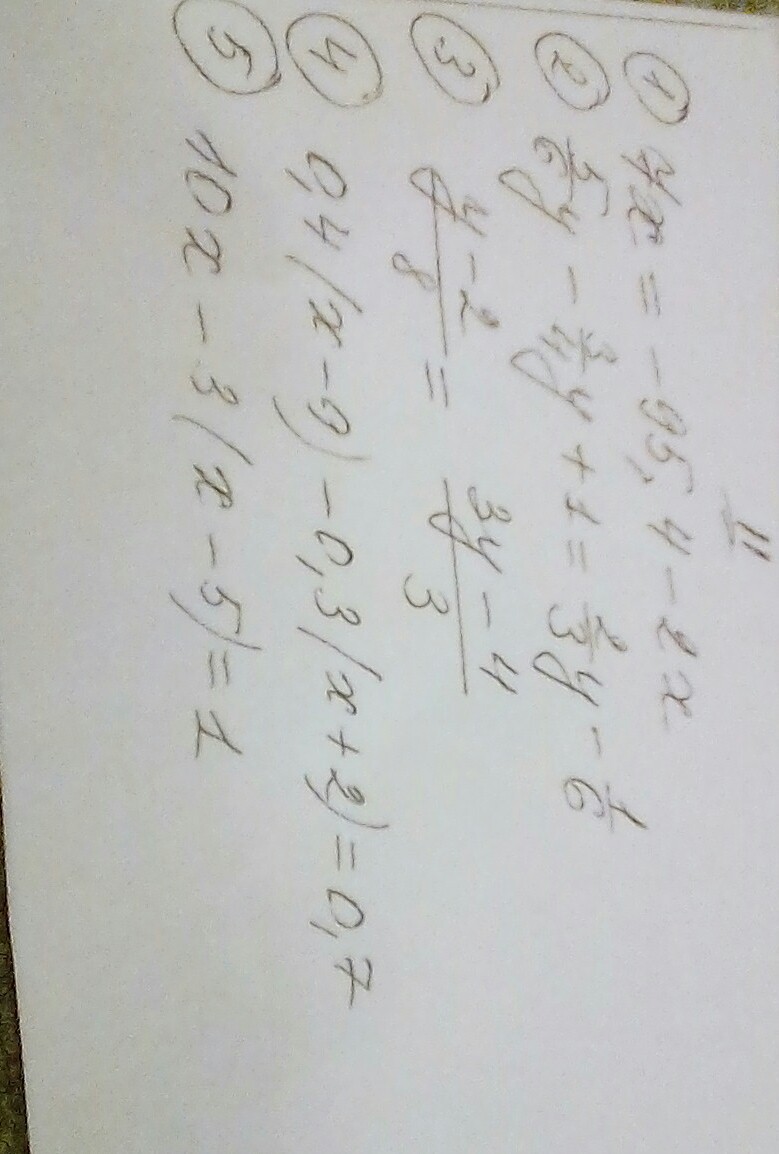 II
① 7x = -95,4 - 2x
② 5/6 y - 3/4 y + 1 = 2/3 y - 1/6
③ y-2/8 = 3y-4/3
④ 0,4(x-9) - 0,3(x+2) = 0,7
⑤ 10x - 3(x-5) = 1